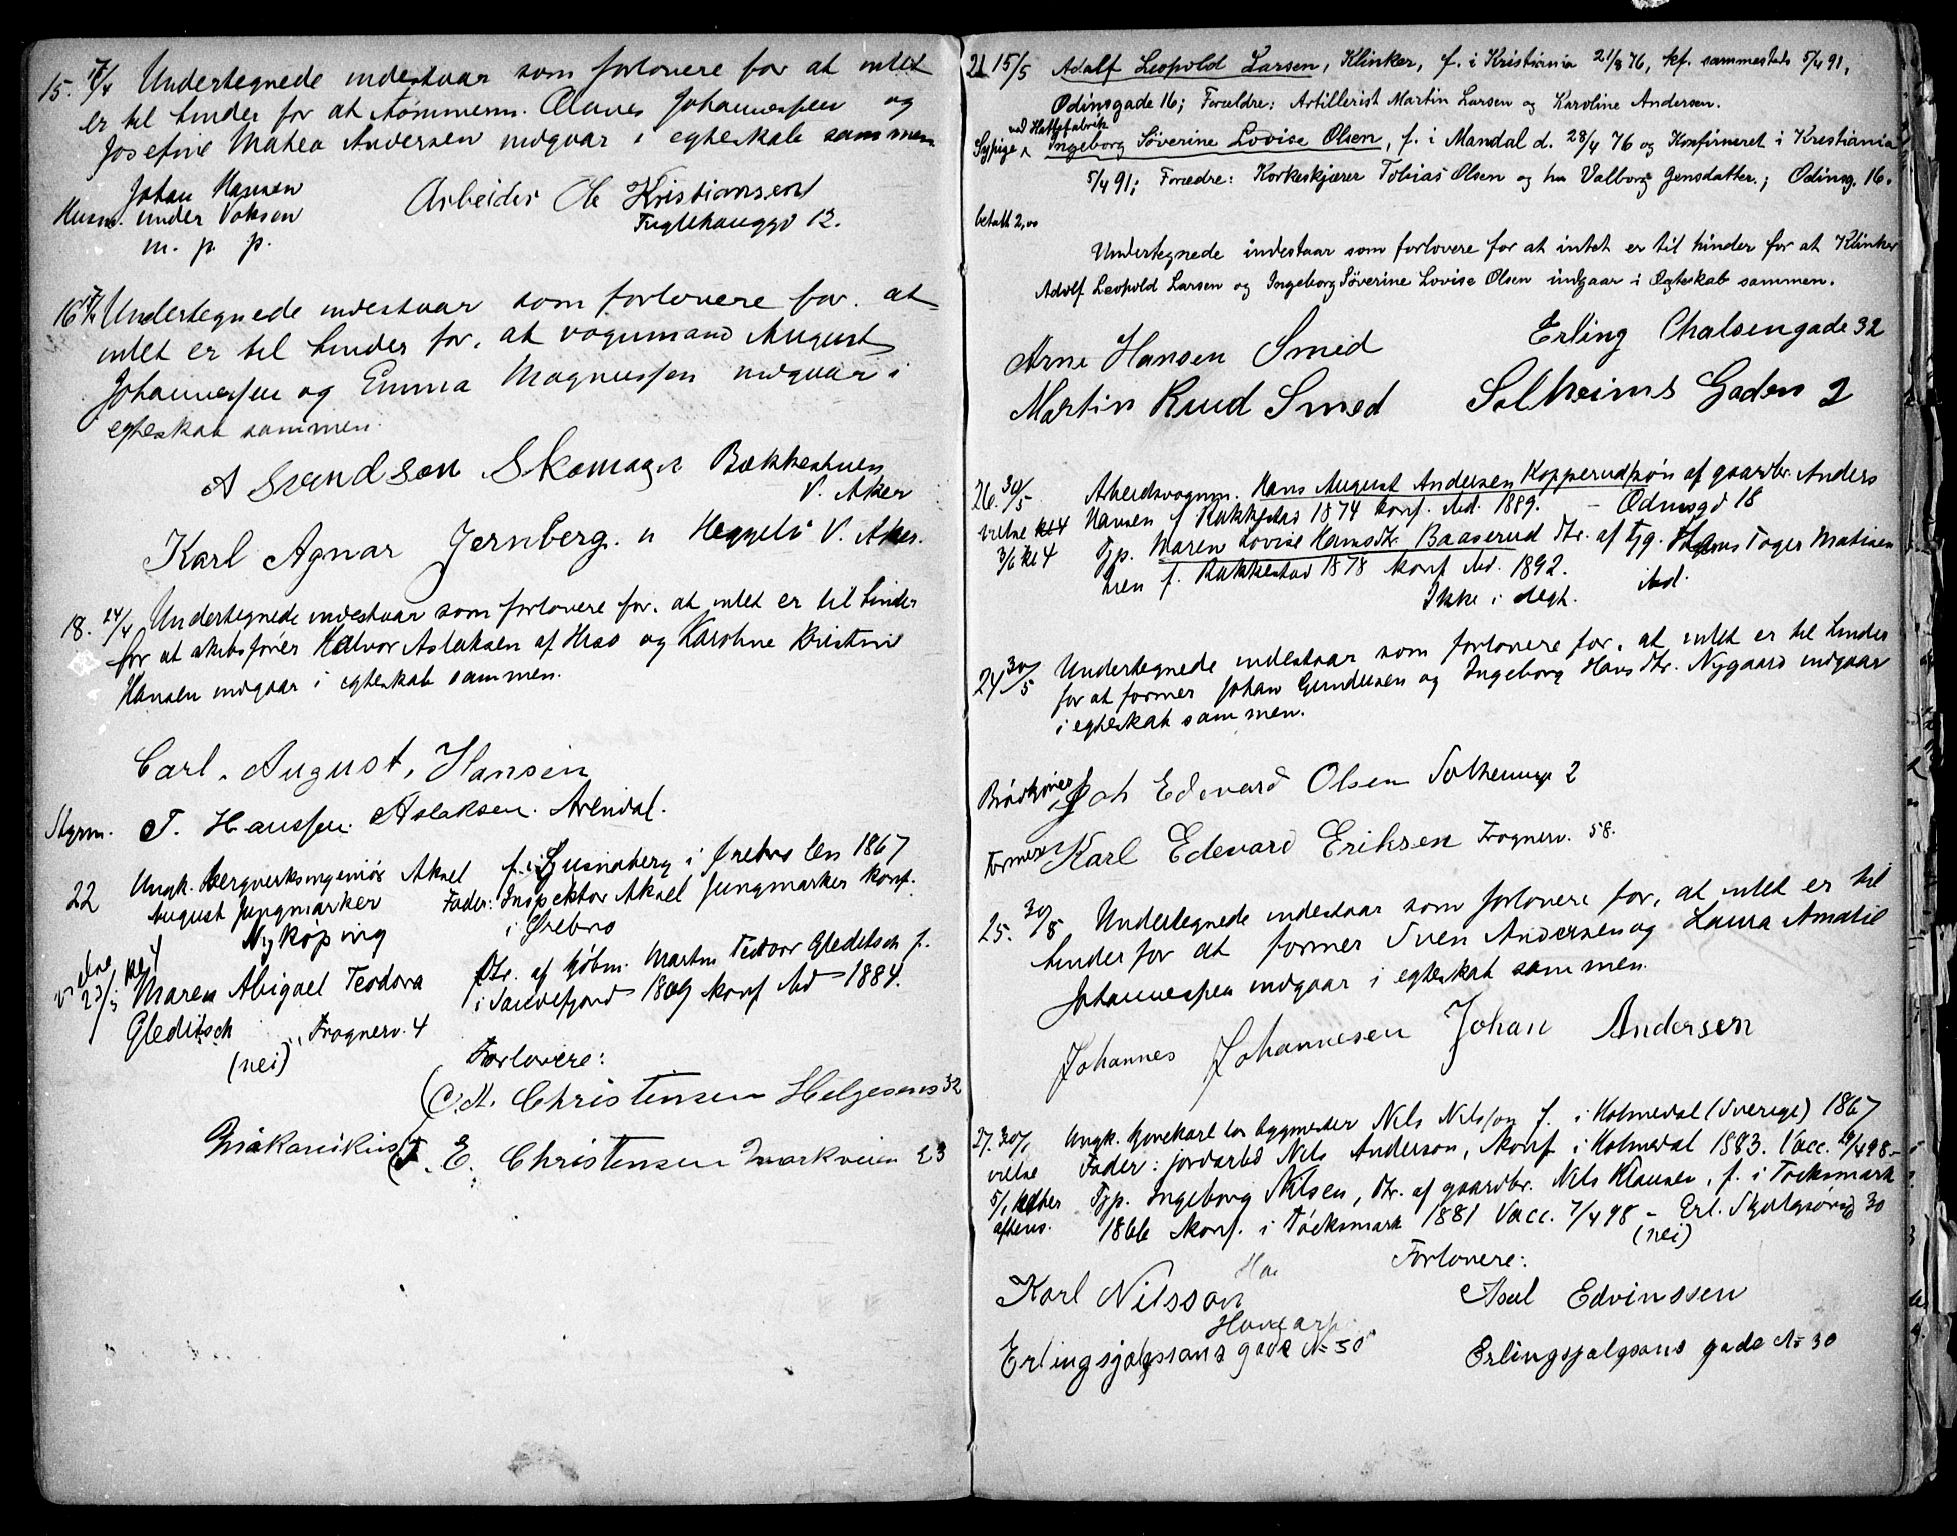 15. 17/4 Undertegnede indestaar som forlovere for at intet
er til hinder for at Tømmerm. Olaves Johannessen og
Josefine Mathea Andersen indgaar i egteskab sammen
Johan Hansen
Husm. under Voksen
m. p. p.
Arbeider Ole Kristiansen
Fuglehauggd 12.
16 Undertegnede indestaar som forlovere for at
intet er til hinder for, at vognmand August
Johannessen og Emma Magnussen indgaar i
egteskab sammen.
A Svendson Skomager Bækkestuen
V. Aker
Karl Agnar Jernberg. Heggeli V. Aker.
18. 24/4 Undertegnede indestaar som forlovere for, at intet er til hinder
for at skibsfører Halvor Aslaksen af Hisø og Karoline Kristine
Hansen indgaar i egteskab sammen.
Carl. August. Hansen
Styrm. T. Hanssen Aslaksen. Arendal.
22 Ungk. bergverksingeniør Aksel
August Jungmarker
Nykøping
f. i Ljusnaberg i Ørebro len 1867
Fader: Inspektor Aksel Jungmarker konf.
i Ørebro
vielse 23/5 kl 4
Maren Abigael Teodora
Gleditsch Frognerv. 4
(nei)
dtr. af kjøbm. Martin Teodor Gleditsch f.
i Sandefjord 1869 konf ibd 1884.
Forlovere:
C. M. Christensen Helgesens 32
Mekanikus T. E. Christensen Markveien 23
21 15/5 Adolf Leopold Larsen, Klinker, f. i Kristiania 21/8 76, kf. sammesteds 5/4 91,
Odinsgade 16; Forældre: Artillerist Martin Larsen og Karoline Andersen.
ved Hattefabrik
Sypige Ingeborg Söverine Lovise Olsen, f. i Mandal d. 28/4 76 og Konfirmeret i Kristiania
5/4 91; Forældre: Korkeskjærer Tobias Olsen og hu Valborg Jensdatter.; Odinsg. 16.
betalt 2,00
Undertegnede indestaar som forlovere for at intet er til hinder for at Klinker
Adolf Leopold Larsen og Ingeborg Söverine Lovise Olsen indgaar i Ægteskab sammen.
Arne Hansen Smed Erling Chalsengade 32
Martin Ruud Smed Solheims Gaden 2
26. 30/5 Arbeidsvognm. Hans August Andersen Kopperud søn af gaardbr. Anders
Hansen f. Rakkestad 1874 konf. ibd. 1889. - Odinsgd 18
vielse 3/6 kl 4
Pjp. Maren Lovise Hansdtr. Baaserud dtr. af tjg. Hans Toger Matisen
hien f. Rakkestad 1878 konf ibd. 1892. ibd.
Ikke i slegt.
24 30/5 Undertegnede indestaar som forlovere for, at intet er til hinder
for at former Johan Gundersen og Ingeborg Hansdtr. Nygaard indgaar
i egteskab sammen.
Brødkjører Joh Edevard Olsen Solheimsg 2
Former Karl Edevard Eriksen Frognerv. 58.
25. 30/5 Undertegnede indestaar som forlovere for, at intet er til
hinder for at former Sven Andersen og Laura Amalie
Johannessen indgaar i egteskab sammen.
Johannes Johannesen Johan Andersen
27. Ungk. bygmester Nils Nilsson f. i Holmedal (Sverige) 1867
Fader: jordarbd Nils Anderson, konf i Holmedal 1883. Vacc. 19/4 98 -
vielse
aftens.
Pjp. Ingeborg Nilsen, dtr. af gaardbr. Nils Klausen, f. i Töcksmark
1866 konf. i Töcksmark 1881 Vacc. 7/4 98 - Erl. Skjalgsøns gd 30
(nei)
Forlovere:
Karl Nilsson
Axel Edvinssen
Erlingsjalgsons gade No 30
Erlingsjalgsons gade No 30